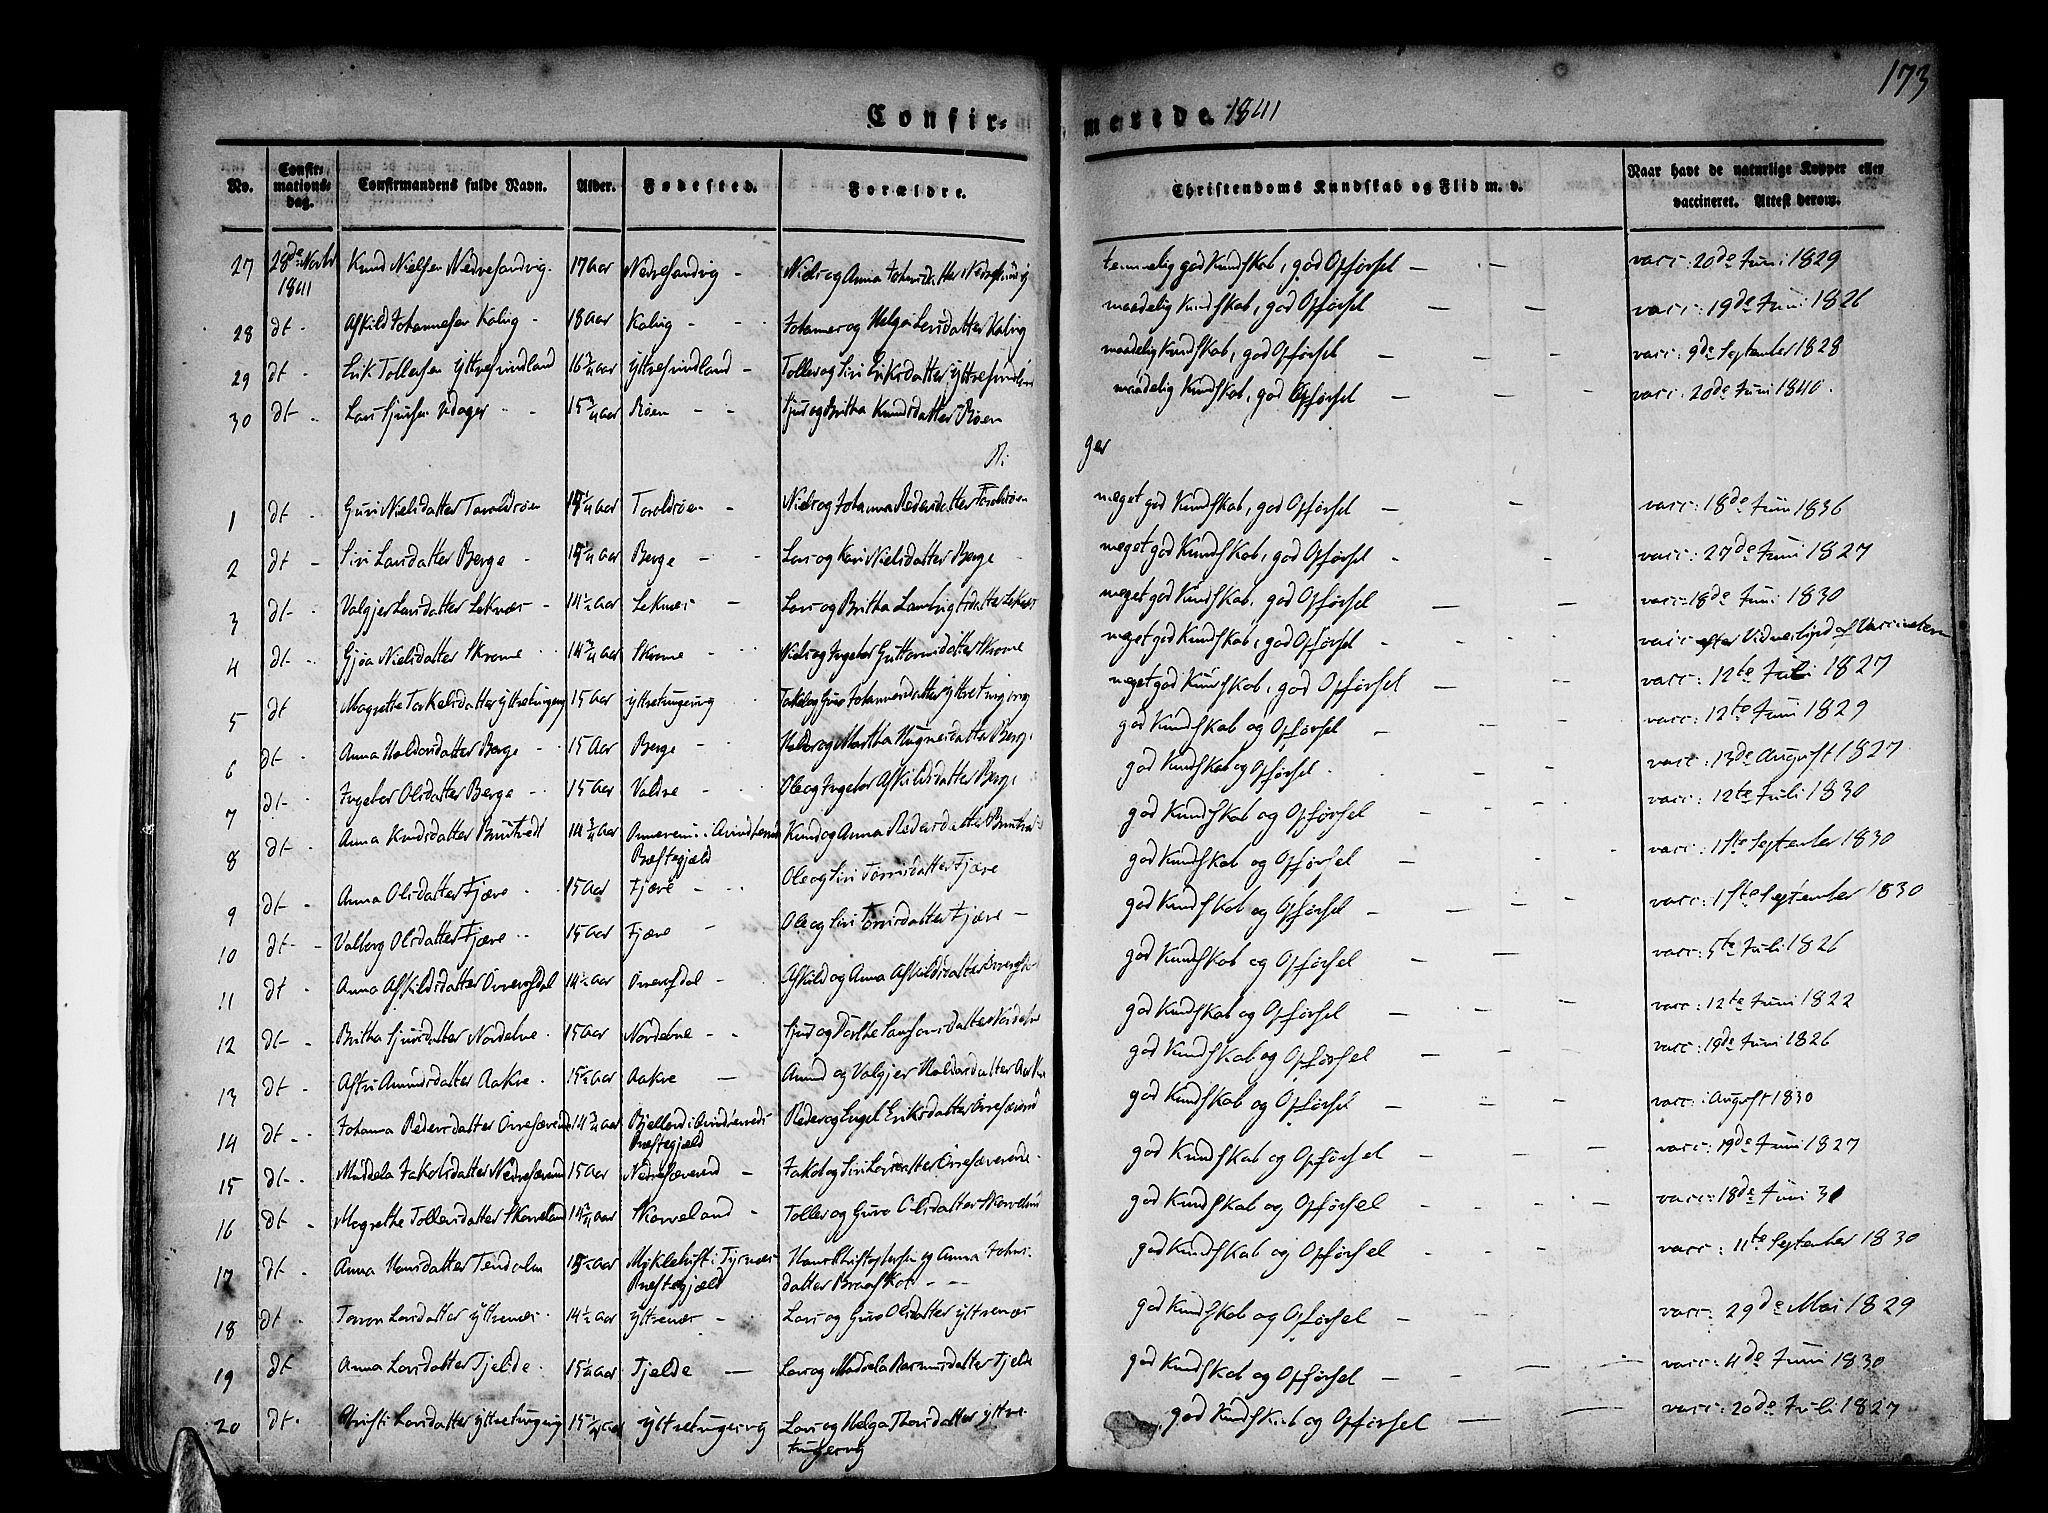 173
Confirmerede 1841
No. Confirmationsdag. Confirmandens fulde Navn. Alder. Fødested. Forældre. Christendoms Kundskab og Flid m. v. Naar havt de naturlige Kopper eller vaccineret. Attest derom.
27 28de Novbr 1841 Knud Nielsen Nedresandvig 17 Aar Nedresandvig - Niels og Anna Johnsdatter Nedresandvig temmelig god Kundskab, god Opførsel — vacc: 20de Juni 1829
28 dt Askild Johannesen Kalvig - 18 Aar Kalvig - Johannes og Helga Larsdatter Kalvig maadelig Kundskab, god Opførsel — vacc: 19de Juni 1826
29 dt Erik Tollefsen Yttre 16 3/4 Aar Yttre - Tollef og Siri Eriksdatter Yttre maadelig Kundskab, god Opførsel — vacc: 9de September 1828
30 dt Lars Sjursen 15 3/4 Aar Røen - Sjur og Britha Knudsdatter Røen maadelig Kundskab, god Opførsel — vacc: 20de Juni 1840
Pi ger
1 dt Guri Nielsdatter Toraldsøen Aar Toraldsøen - Niels og Johanna Pedersdatter Toraldsøen meget god Kundskab, god Opførsel — vacc: 18de Juni 1836
2 dt Siri Larsdatter Berge - Aar Berge - Lars og Kari Nielsdatter Berge meget god Kundskab, god Opførsel - vacc: 27de Juni 1827
3 dt Valgjer Larsdatter Leknæs - 14 1/2 Aar Leknæs - Lars og Britha Leknæs meget god Kundskab, god Opførsel — vacc: 18de Juni 1830
4 dt Gjøa Nielsdatter Skromme 14 3/4 Aar Skromme Niels og Ingebor Guttormsdatter Skromme meget god Kundskab, god Opførsel vacc: efter Vidnesbyrd af Vaccinateuren
5 dt Magrethe Torkelsdatter Yttretungesvig 15 Aar Yttretungesvig Torkel og Guro Johannesdatter Yttretungesvig meget god Kundskab, god Opførsel — vacc: 12te Juli 1827
6 dt Anna Haldorsdatter Berge - 15 Aar Berge - Haldor og Martha Berge god Kundskab og Opførsel — vacc: 12te Juni 1829
7 dt Ingebor Olsdatter Berge - 15 Aar Valdre - Ole og Ingebor Askildsdatter Berge god Kundskab og Opførsel vacc: 13de August 1827
8 dt Anna Knudsdatter Bruntvedt 14 3/4 Aar i Præstegjæld Knud og Anna Pedersdatter god Kundskab og Opførsel - vacc: 12te Juli 1830
9 dt Anna Olsdatter Fjære 15 Aar Fjære - Ole og Siri Fjære god Kundskab og Opførsel — vacc: 1ste September 1830
10 dt Valborg Olsdatter Fjære 15 Aar Fjære - Ole og Siri Fjære - god Kundskab og Opførsel — vacc: 1ste September 1830
11 dt Anna Askildsdatter 14 1/2 Aar - Askild og Anna Askildsdatter god Kundskab og Opførsel — vacc: 5te Juli 1826
12 dt Britha Sjursdatter 15 Aar - Sjur og Dorthe Samsonsdatter god Kundskab og Opførsel — vacc: 12te Juni 1822
13 dt Amundsdatter Aakre 15 1/2 Aar Aakre - Amund og Valgjer Haldorsdatter Aakre god Kundskab og Opførsel — vacc: 19de Juni 1826
14 dt Johanna Pedersdatter 14 3/4 Aar i Præstegjæld Peder og Engel Eriksdatter god Kundskab og Opførsel — vacc: August 1830
15 dt Jakobsdatter 15 Aar - Jakob og Siri Larsdatter god Kundskab og Opførsel — vacc: 19de Juni 1827
16 dt Magrethe Tollefsdatter Skorveland Aar Skorveland - Tollef og Guro Olsdatter Skorveland god Kundskab og Opførsel - vacc: 18de Juni 31
17 dt Anna Hansdatter Tendalm Aar i Præstegjæld Hans Christophersen og Anna Johnsdatter god Kundskab og Opførsel - vacc: 11te September 1830
18 dt Larsdatter Yttrenæs 14 1/2 Aar Yttrenæs - Lars og Guro Olsdatter Yttrenæs god Kundskab og Opførsel — vacc: 29de Mai 1829
19 dt Anna Larsdatter Tjelde 15 1/4 Aar Tjelde — Lars og Rasmusdatter Tjelde god Kundskab og Opførsel — vacc: 4de Juni 1830
20 dt Christi Larsdatter Yttretungesvig Aar Yttretungesvig Lars og Helga Thorsdatter Yttretungesvig god Kundskab og Opførsel — vacc: 20de Juli 1827